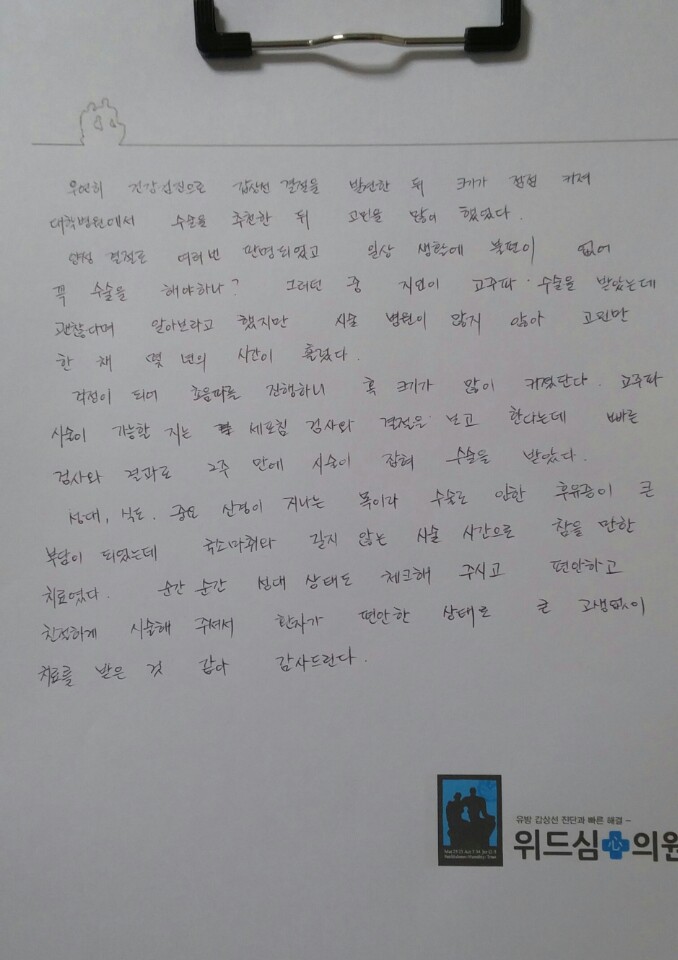 우연히 건강검진으로 갑상선 결절을 발견한 뒤 크기가 점점 커져
대학병원에서 수술을 추천한 뒤 고민을 많이 했었다.
양성 결절로 여러번 판명되었고 일상 생활에 불편이 없어
꼭 수술을 해야하나? 그러던 중 지인이 고주파 수술을 받았는데
괜찮다며 알아보라고 했지만 시술 병원이 많지 않아 고민만
한 채 몇 년의 시간이 흘렀다.
걱정이 되어 초음파를 진행하니 혹 크기가 많이 커졌단다. 고주파
시술이 가능할 지는 세포침 검사와 결절을 보고 한다는데 빠른
검사와 결과로 2주 만에 시술이 잡혀 수술을 받았다.
성대, 식도, 중요 신경이 지나는 목이라 수술로 인한 후유증이 큰
부담이 되었는데 국소마취와 길지 않는 시술 시간으로 참을 만한
치료였다. 순간 순간 성대 상태도 체크해 주시고 편안하고
친절하게 시술해 주셔서 환자가 편안한 상태로 큰 고생없이
치료를 받은 것 같아 감사드린다.
유방 갑상선 진단과 빠른 해결 -
위드심 心 의원